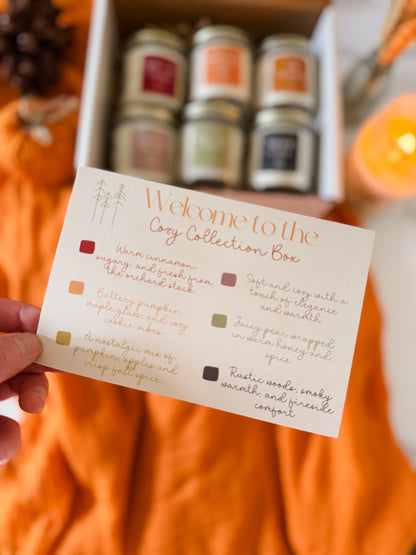 Welcome to the
Cozy Collection Box
Warm cinnamon-
sugary, and fresh from
the orchard stack
Buttery pumpkin,
maple glaze, and cozy
cookie vibes
A nostalgic mix of
pumpkin, apples and
crisp fall spice
Soft and cozy with a
touch of elegance
and warmth
Juicy pear wrapped
in warm honey and
spice
Rustic woods, smoky
warmth, and fireside
comfort